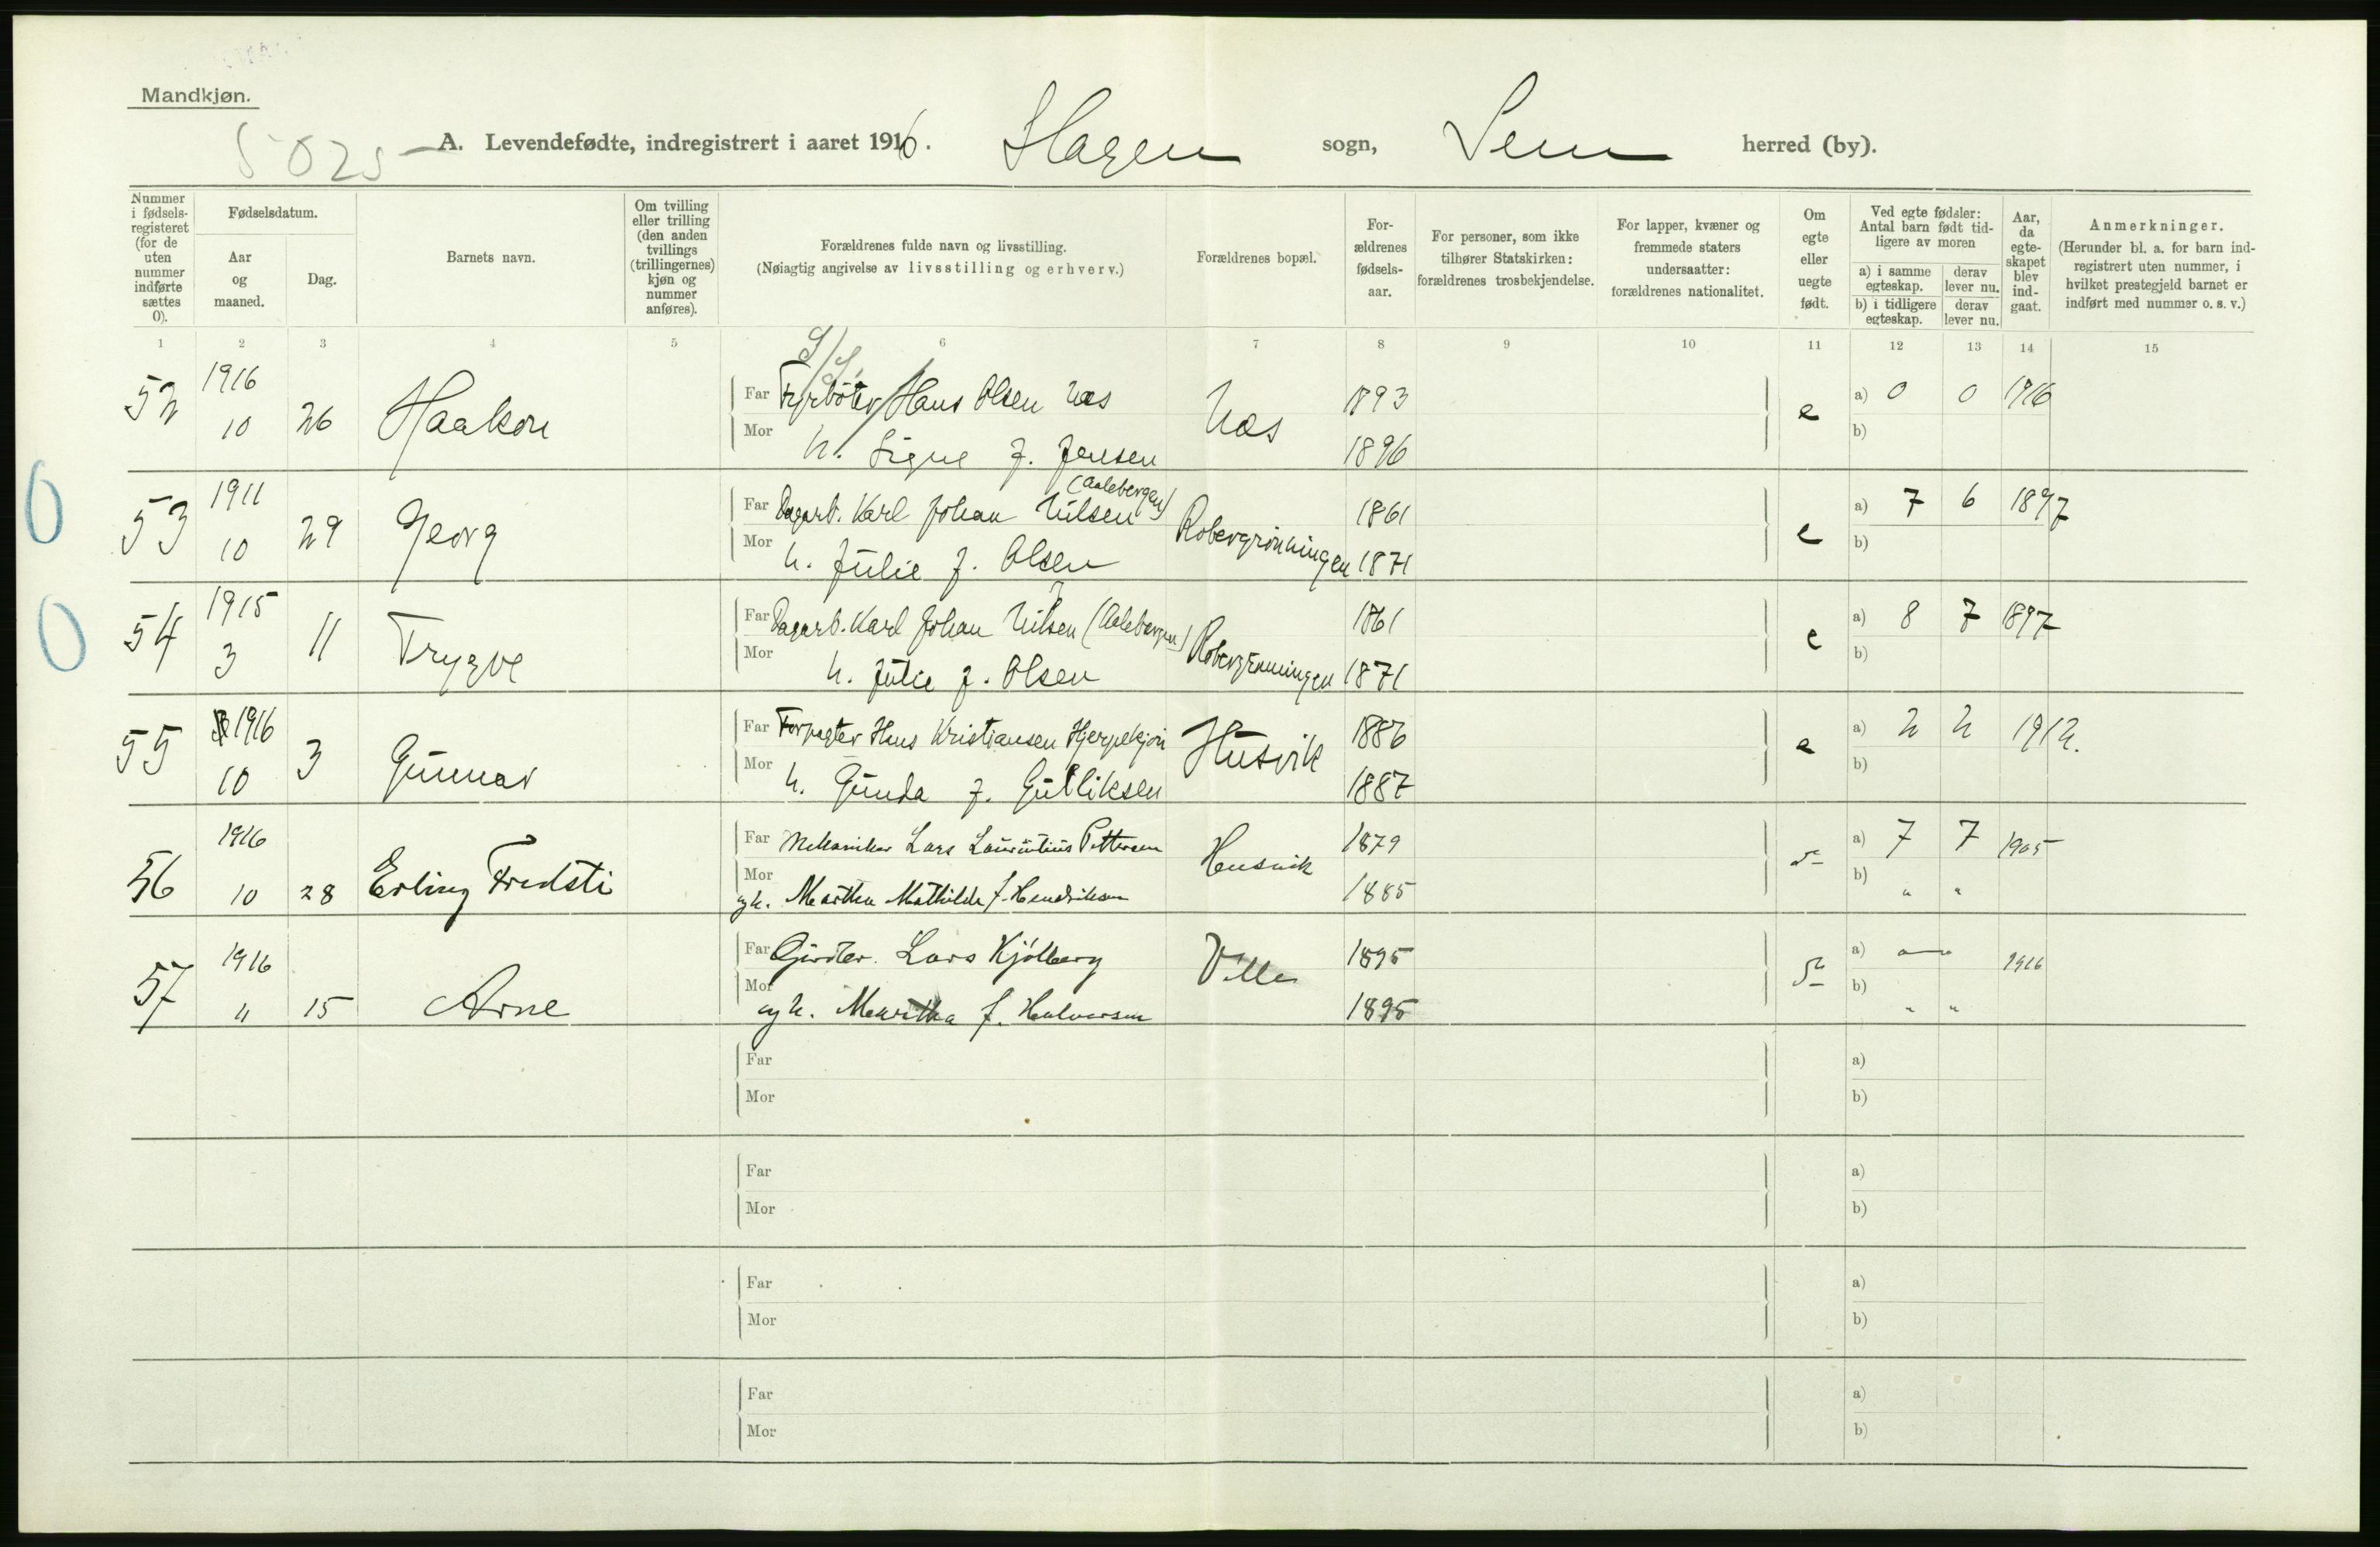 Mandkjøn.
5025
A. Levendefødte, indregistrert i aaret 1916. Slagen sogn, Sem herred (by).
Nummer i fødselsregisteret (for de uten nummer indførte sættes 0).
Fødselsdatum.
Aar og maaned.
Dag.
Barnets navn.
Om tvilling eller trilling (den anden tvillings (trillingernes) kjøn og nummer anføres).
Forældrenes fulde navn og livsstilling.
(Nøiagtig angivelse av livsstilling og erhverv.)
Forældrenes bopæl.
Forældrenes fødselsaar.
For personer, som ikke tilhører Statskirken: forældrenes trosbekjendelse.
For lapper, kvæner og fremmede staters undersaatter: forældrenes nationalitet.
Om egte eller uegte født.
Ved egte fødsler: Antal barn født tidligere av moren
a) i samme egteskap. derav lever nu.
b) i tidligere egteskap. derav lever nu.
Aar, da egteskapet blev indgaat.
Anmerkninger.
(Herunder bl. a. for barn indregistrert uten nummer, i hvilket prestegjeld barnet er indført med nummer o. s. v.)
1 2 3 4 5 6 7 8 9 10 11 12 13 14 15
52 1916 10 26 Haakon Far Fyrbøter Hans Olsen Næs Næs 1893 e a) 0 0 1916
Mor h. Signe f. Jensen 1896 b)
0 53 1911 10 29 Georg Far Dagarb. Karl Johan Nilsen (Aalebergen) Robergrønningen 1861 e a) 7 6 1897
Mor h. Julie f. Olsen 1871 b)
0 54 1915 3 11 Trygve Far Dagarb. Karl Johan Nilsen (Aalebergen) Robergrønningen 1861 e a) 8 7 1897
Mor h. Julie f. Olsen 1871 b)
55 1916 10 3 Gunnar Far Forpagter Hans Kristiansen Husvik 1886 e a) 2 2 1912.
Mor h. Gunda f. Gulliksen 1887 b)
56 1916 10 28 Erling Far Mekaniker Lars Laurentius Pettersen Husvik 1879 a) 7 7 1905
Mor og h. Martha Mathilde f. Hendriksen 1885 b) " "
57 1916 " 15 Arne Far Lars Kjølberg 1895 a) 1916
Mor og h. Martha f. Halvorsen 1895 b) " "
Far a)
Mor b)
Far a)
Mor b)
Far a)
Mor b)
Far a)
Mor b)